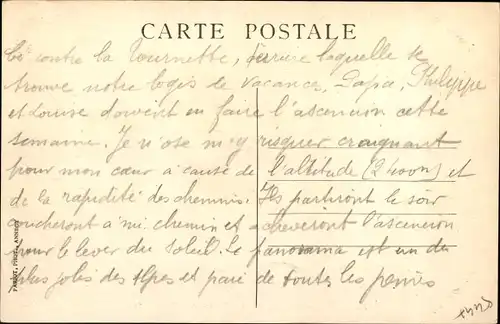 CARTE POSTALE
Ci contre la Tournette, derrière laquelle se
trouve notre logis de vacances, Papa, Philippe
et Louise doivent en faire l'ascencion cette
semaine. Je n'ose m'y risquer craignant
pour mon cœur à cause de l'altitude (2400m) et
de la "rapidité" des chemins. Ils partiront le soir
coucheront à mi chemin et achèveront l'ascencion
pour le lever du soleil. Le panorama est un des
plus jolis des Alpes et paie de toutes les peines